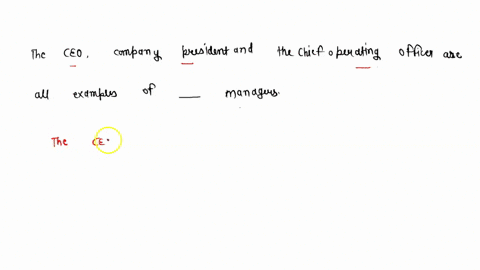 The CEO, company president and the Chief operating officer are
all examples of ___ managers.
The CE